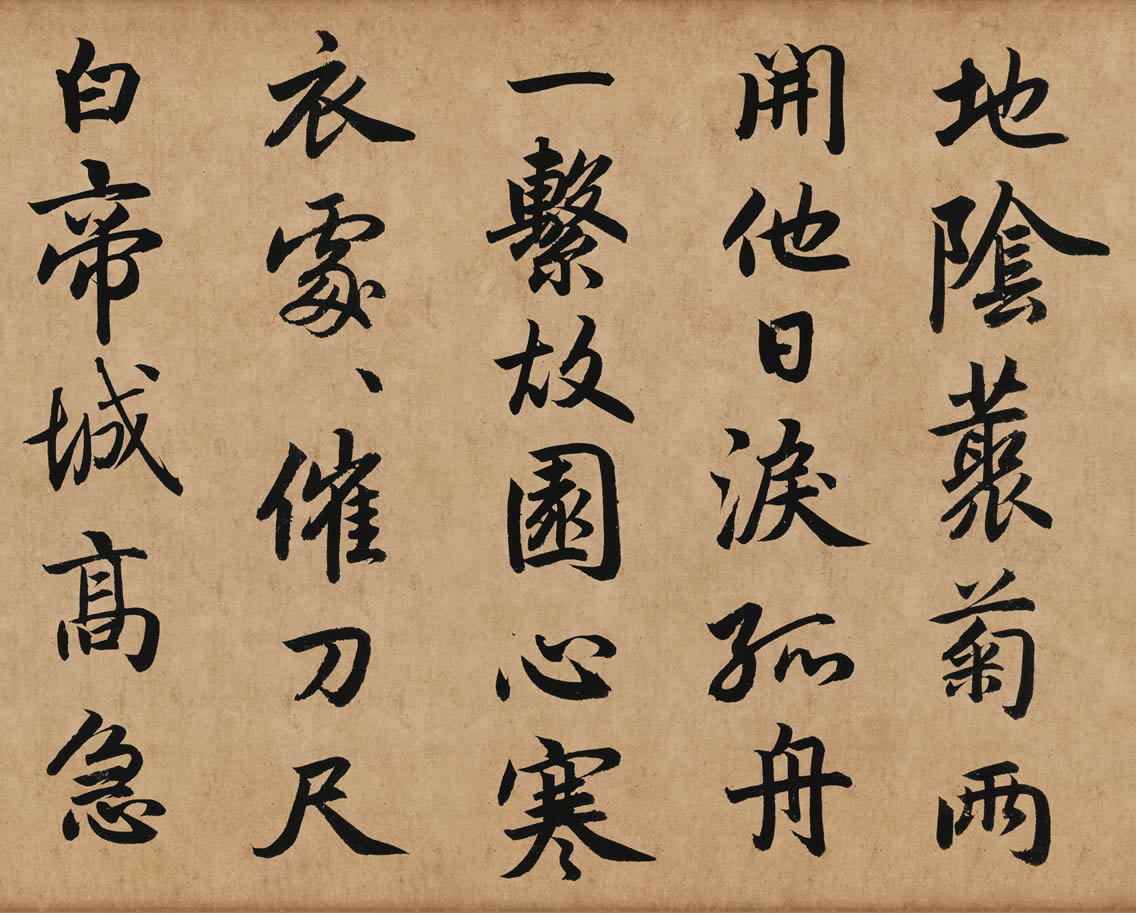 地陰藂菊兩
開他日淚孤舟
一繫故園心寒
衣處〻催刀尺
白帝城髙急